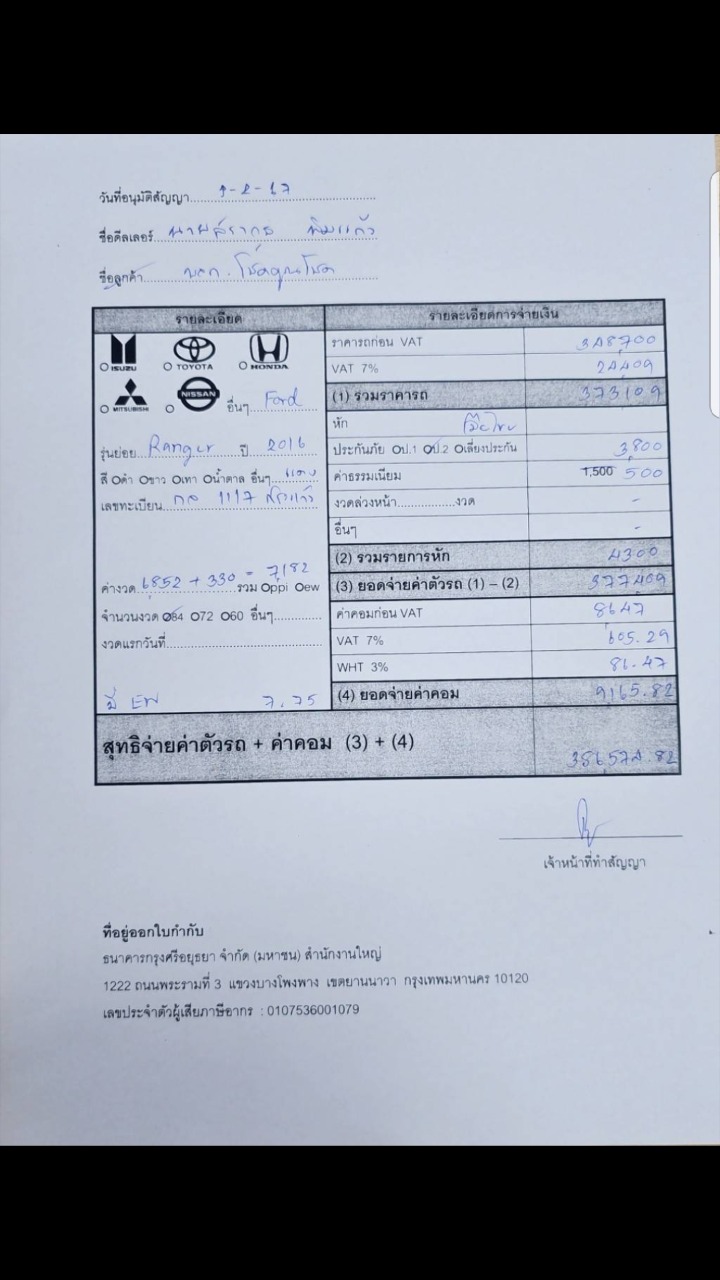 วันที่อนุมัติสัญญา
ชื่อดีลเลอร์
ชื่อลูกค้า
รายละเอียด
รายละเอียดการจ่ายเงิน
ISUZU TOYOTA HONDA
MITSUBISHI NISSAN อื่นๆ Ford
รุ่นย่อย Ranger ปี 2016
สี ดำ ขาว เทา น้ำตาล อื่นๆ แดง
เลขทะเบียน 1117
ค่างวด 6852 + 330 = 7182 รวม ppi ew
จำนวนงวด 84 72 60 อื่นๆ
งวดแรกวันที่
มี EW 7.75
ราคารถก่อน VAT 348,700
VAT 7% 24,409
(1) รวมราคารถ 373109
หัก
ประกันภัย ป.1 ป.2 เลี่ยงประกัน 3,800
ค่าธรรมเนียม 1,500 500
งวดล่วงหน้า งวด -
อื่นๆ -
(2) รวมรายการหัก 4300
(3) ยอดจ่ายค่าตัวรถ (1) – (2) 377409
ค่าคอมก่อน VAT 8647
VAT 7% 605.29
WHT 3%
(4) ยอดจ่ายค่าคอม 9,165.82
สุทธิจ่ายค่าตัวรถ + ค่าคอม (3) + (4) 386574.82
เจ้าหน้าที่ทำสัญญา
ที่อยู่ออกใบกำกับ
ธนาคารกรุงศรีอยุธยา จำกัด (มหาชน) สำนักงานใหญ่
1222 ถนนพระรามที่ 3 แขวงบางโพงพาง เขตยานนาวา กรุงเทพมหานคร 10120
เลขประจำตัวผู้เสียภาษีอากร : 0107536001079